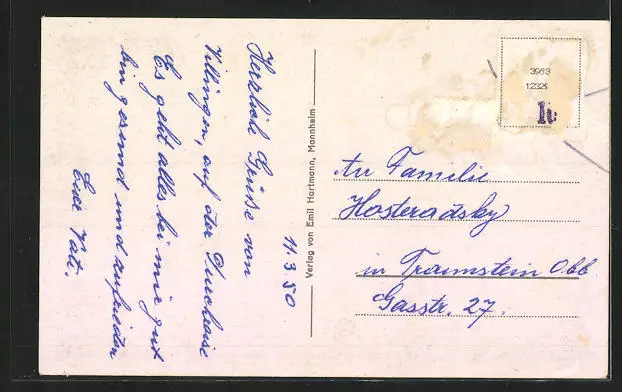 11.3.50
Herzliche Grüße von
Villingen, auf der Durchreise
Es geht alles bei mir gut
bin gesund und zufrieden
Euer Vati.
Verlag von Emil Hartmann, Mannheim
3963
12321
An Familie
Hosteradsky
in Traunstein Obb
Gasstr. 27.